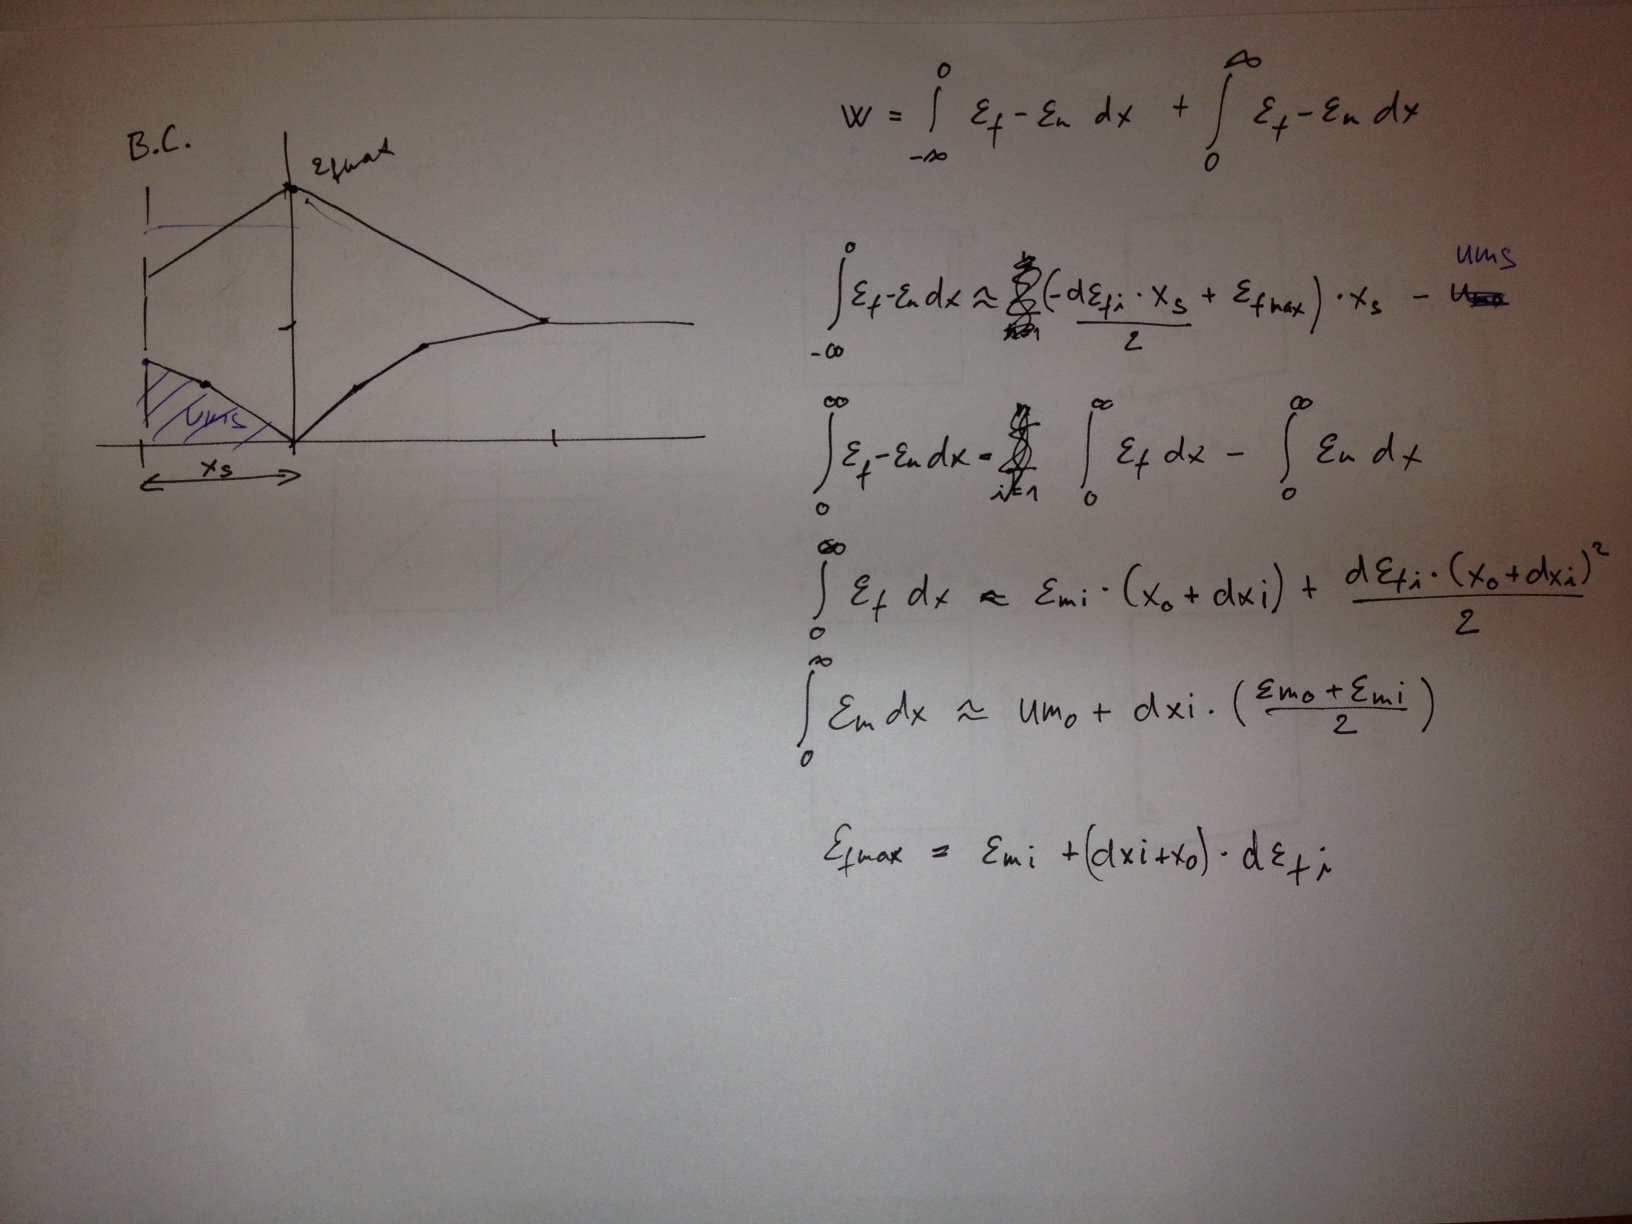 B.C.
εfmax
ums
xs
w = ∫_{-∞}^{0} εf - εm dx + ∫_{0}^{∞} εf - εm dx
∫_{-∞}^{0} εf - εm dx ≈ (-dεfi · xs / 2 + εfmax) · xs - ums
∫_{0}^{∞} εf - εm dx = ∫_{0}^{∞} εf dx - ∫_{0}^{∞} εm dx
∫_{0}^{∞} εf dx ≈ εmi · (x0 + dxi) + dεfi · (x0 + dxi)² / 2
∫_{0}^{∞} εm dx ≈ um0 + dxi · (εm0 + εmi / 2)
εfmax = εmi + (dxi + x0) · dεfi